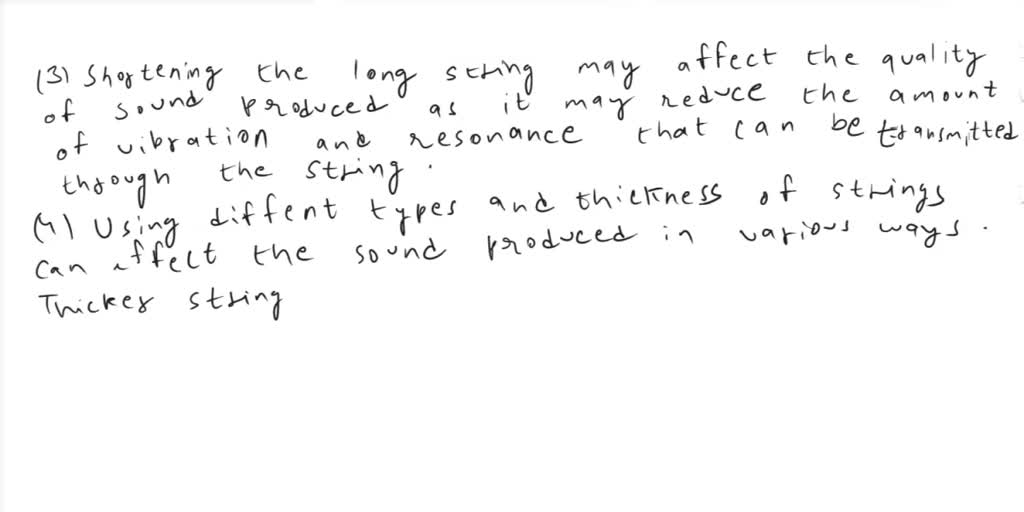 (3) Shortening the long string may affect the quality
of sound produced as it may reduce the amount
of vibration and resonance that can be transmitted
through the string.
(4) Using diffent types and thickness of strings
can affect the sound produced in various ways.
Thicker string